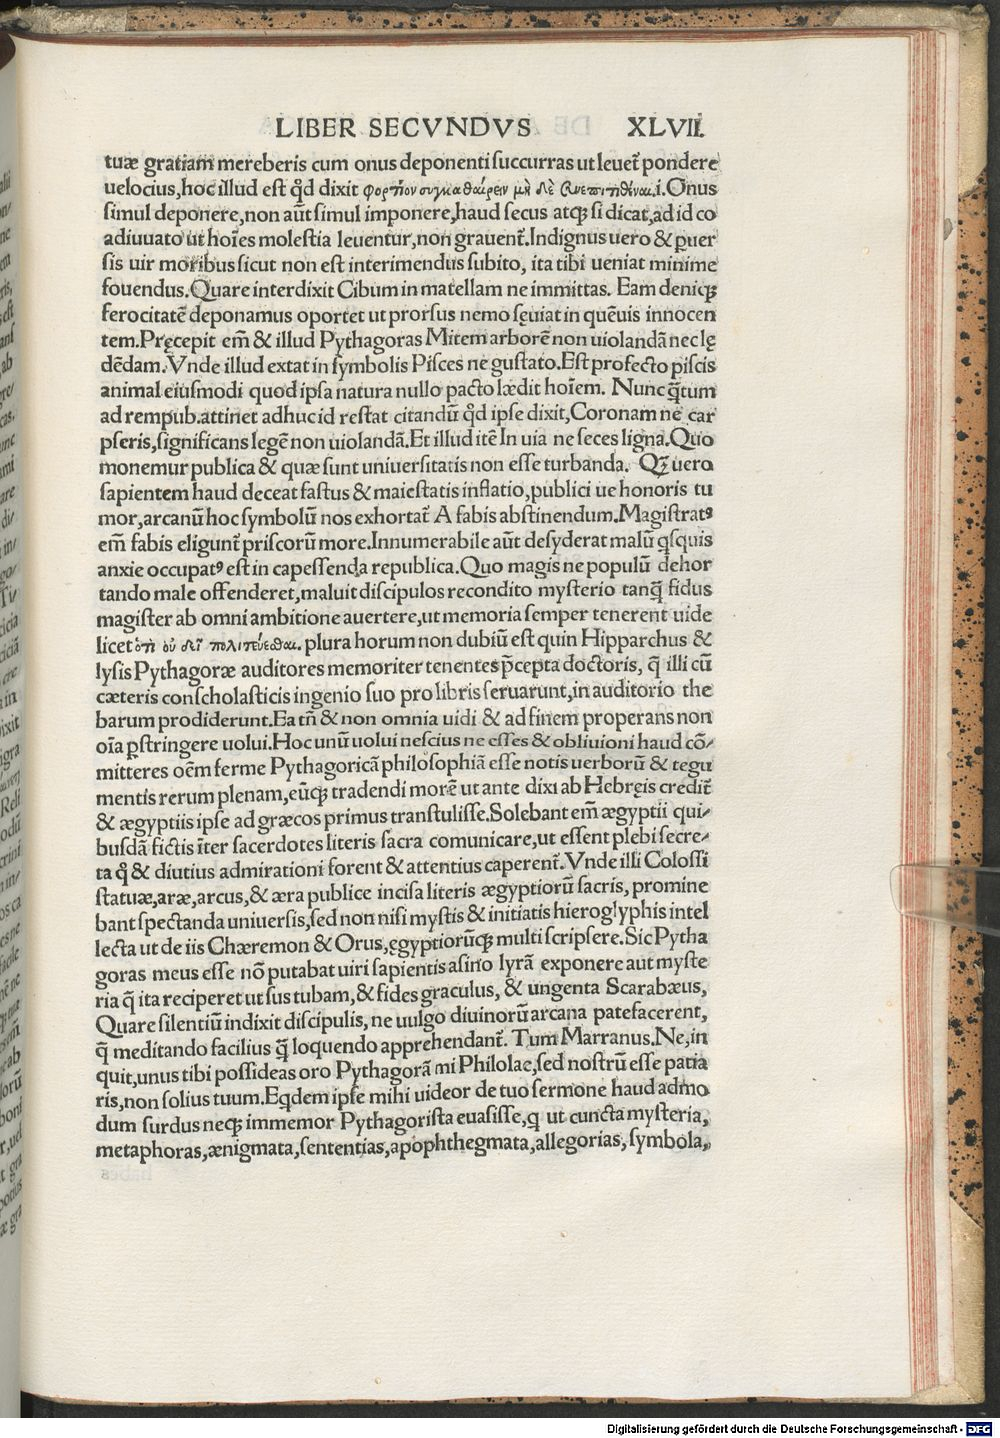 LIBER SECVNDVS XLVII.
tuæ gratiam mereberis cum onus deponenti succurras ut leuet̃ pondere
uelocius, hoc illud est qd̃ dixit φορτίον συγκαθαίρειν μὴ δὲ συνεπιτιθέναι.i. Onus
simul deponere, non aũt simul imponere, haud secus atq; si dicat, ad id co
adiuuato ut hoĩes molestia leuentur, non grauent̃. Indignus uero & ꝑuer
sis uir moribus sicut non est interimendus subito, ita tibi ueniat minime
fouendus. Quare interdixit Cibum in matellam ne immittas. Eam deniq;
ferocitatẽ deponamus oportet ut prorsus nemo sęuiat in quẽuis innocen
tem. Pręcepit em̃ & illud Pythagoras Mitem arborẽ non uiolandã nec lę
dẽdam. Vnde illud extat in symbolis Pisces ne gustato. Est profecto piscis
animal eiusmodi quod ipsa natura nullo pacto lædit hoĩem. Nunc q̃tum
ad rempub. attinet adhuc id restat citandũ qd̃ ipse dixit, Coronam ne car
pseris, significans legẽ non uiolandã. Et illud itẽ In uia ne seces ligna. Quo
monemur publica & quæ sunt uniuersitatis non esse turbanda. Qꝫ uero
sapientem haud deceat fastus & maiestatis inflatio, publici ue honoris tu
mor, arcanũ hoc symbolũ nos exhortat̃ A fabis abstinendum. Magistratꝰ
em̃ fabis eligunt̃ priscorũ more. Innumerabile aũt desyderat malũ qsquis
anxie occupatꝰ est in capessenda republica. Quo magis ne populũ dehor
tando male offenderet, maluit discipulos recondito mysterio tanq̃ fidus
magister ab omni ambitione auertere, ut memoria semper tenerent uide
licet ὅτι οὐ δεῖ πολιτεύεσθαι. plura horum non dubiũ est quin Hipparchus &
lysis Pythagoræ auditores memoriter tenentes p̃cepta doctoris, q̃ illi cũ
cæteris conscholasticis ingenio suo pro libris seruarunt, in auditorio the
barum prodiderunt. Ea tñ & non omnia uidi & ad finem properans non
oĩa ꝑstringere uolui. Hoc unũ uolui nescius ne esses & obliuioni haud cõ/
mitteres oẽm ferme Pythagoricã philosophiã esse notis uerborũ & tegu
mentis rerum plenam, eũq; tradendi morẽ ut ante dixi ab Hebręis credit̃
& ægyptiis ipse ad græcos primus transtulisse. Solebant em̃ ægyptii qui/
busdã fictis ĩter sacerdotes literis sacra comunicare, ut essent plebi secre/
ta q̃ & diutius admirationi forent & attentius caperent̃. Vnde illi Colossi
statuæ, aræ, arcus, & æra publice incisa literis ægyptiorũ sacris, promine
bant spectanda uniuersis, sed non nisi mystis & initiatis hieroglyphis intel
lecta ut de iis Chæremon & Orus, ęgyptiorũq; multi scripsere. Sic Pytha
goras meus esse nõ putabat uiri sapientis asino lyrã exponere aut myste
ria q̃ ita reciperet ut sus tubam, & fides graculus, & ungenta Scarabæus,
Quare silentiũ indixit discipulis, ne uulgo diuinorũ arcana patefacerent,
q̃ meditando facilius q̃ loquendo apprehendant̃. Tum Marranus. Ne, in
quit, unus tibi possideas oro Pythagorã mi Philolae, sed nostrũ esse patia
ris, non solius tuum. Eqdem ipse mihi uideor de tuo sermone haud admo
dum surdus neq; immemor Pythagorista euasisse, q ut cuncta mysteria,
metaphoras, ænigmata, sententias, apophthegmata, allegorias, symbola,
Digitalisierung gefördert durch die Deutsche Forschungsgemeinschaft - DFG